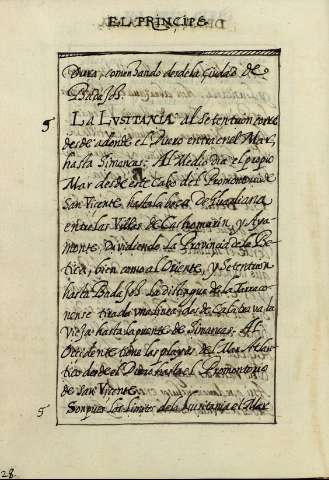 EL PRINCIPE
Dura, comenzando desde la Ciudad de
Badajoh.
5 LA LUSITANIA al Setentrion corre
desde adonde el Duero entra en el Mar
hasta Simancas. Al Medio dia el propio
Mar desde este Cabo del Promontorio
San Vicente, hasta la boca De Guadiana
entre las Villas de Castromarin, y Aya
monte, Dividiendo la Provincia de la Be
tica; bien como al Oriente, y Setentrion
hasta Badajoh la distingue de la Tarraco
nense tirada una linea desde Calatrava la
Vieja hasta la puente de Simancas. Al
Occidente tiene las playas del Mar Atlan
tico desde el Duero hasta el Promontorio
de San Vicente.
5 Son pues los Limites de la Lusitania el Mar
28.